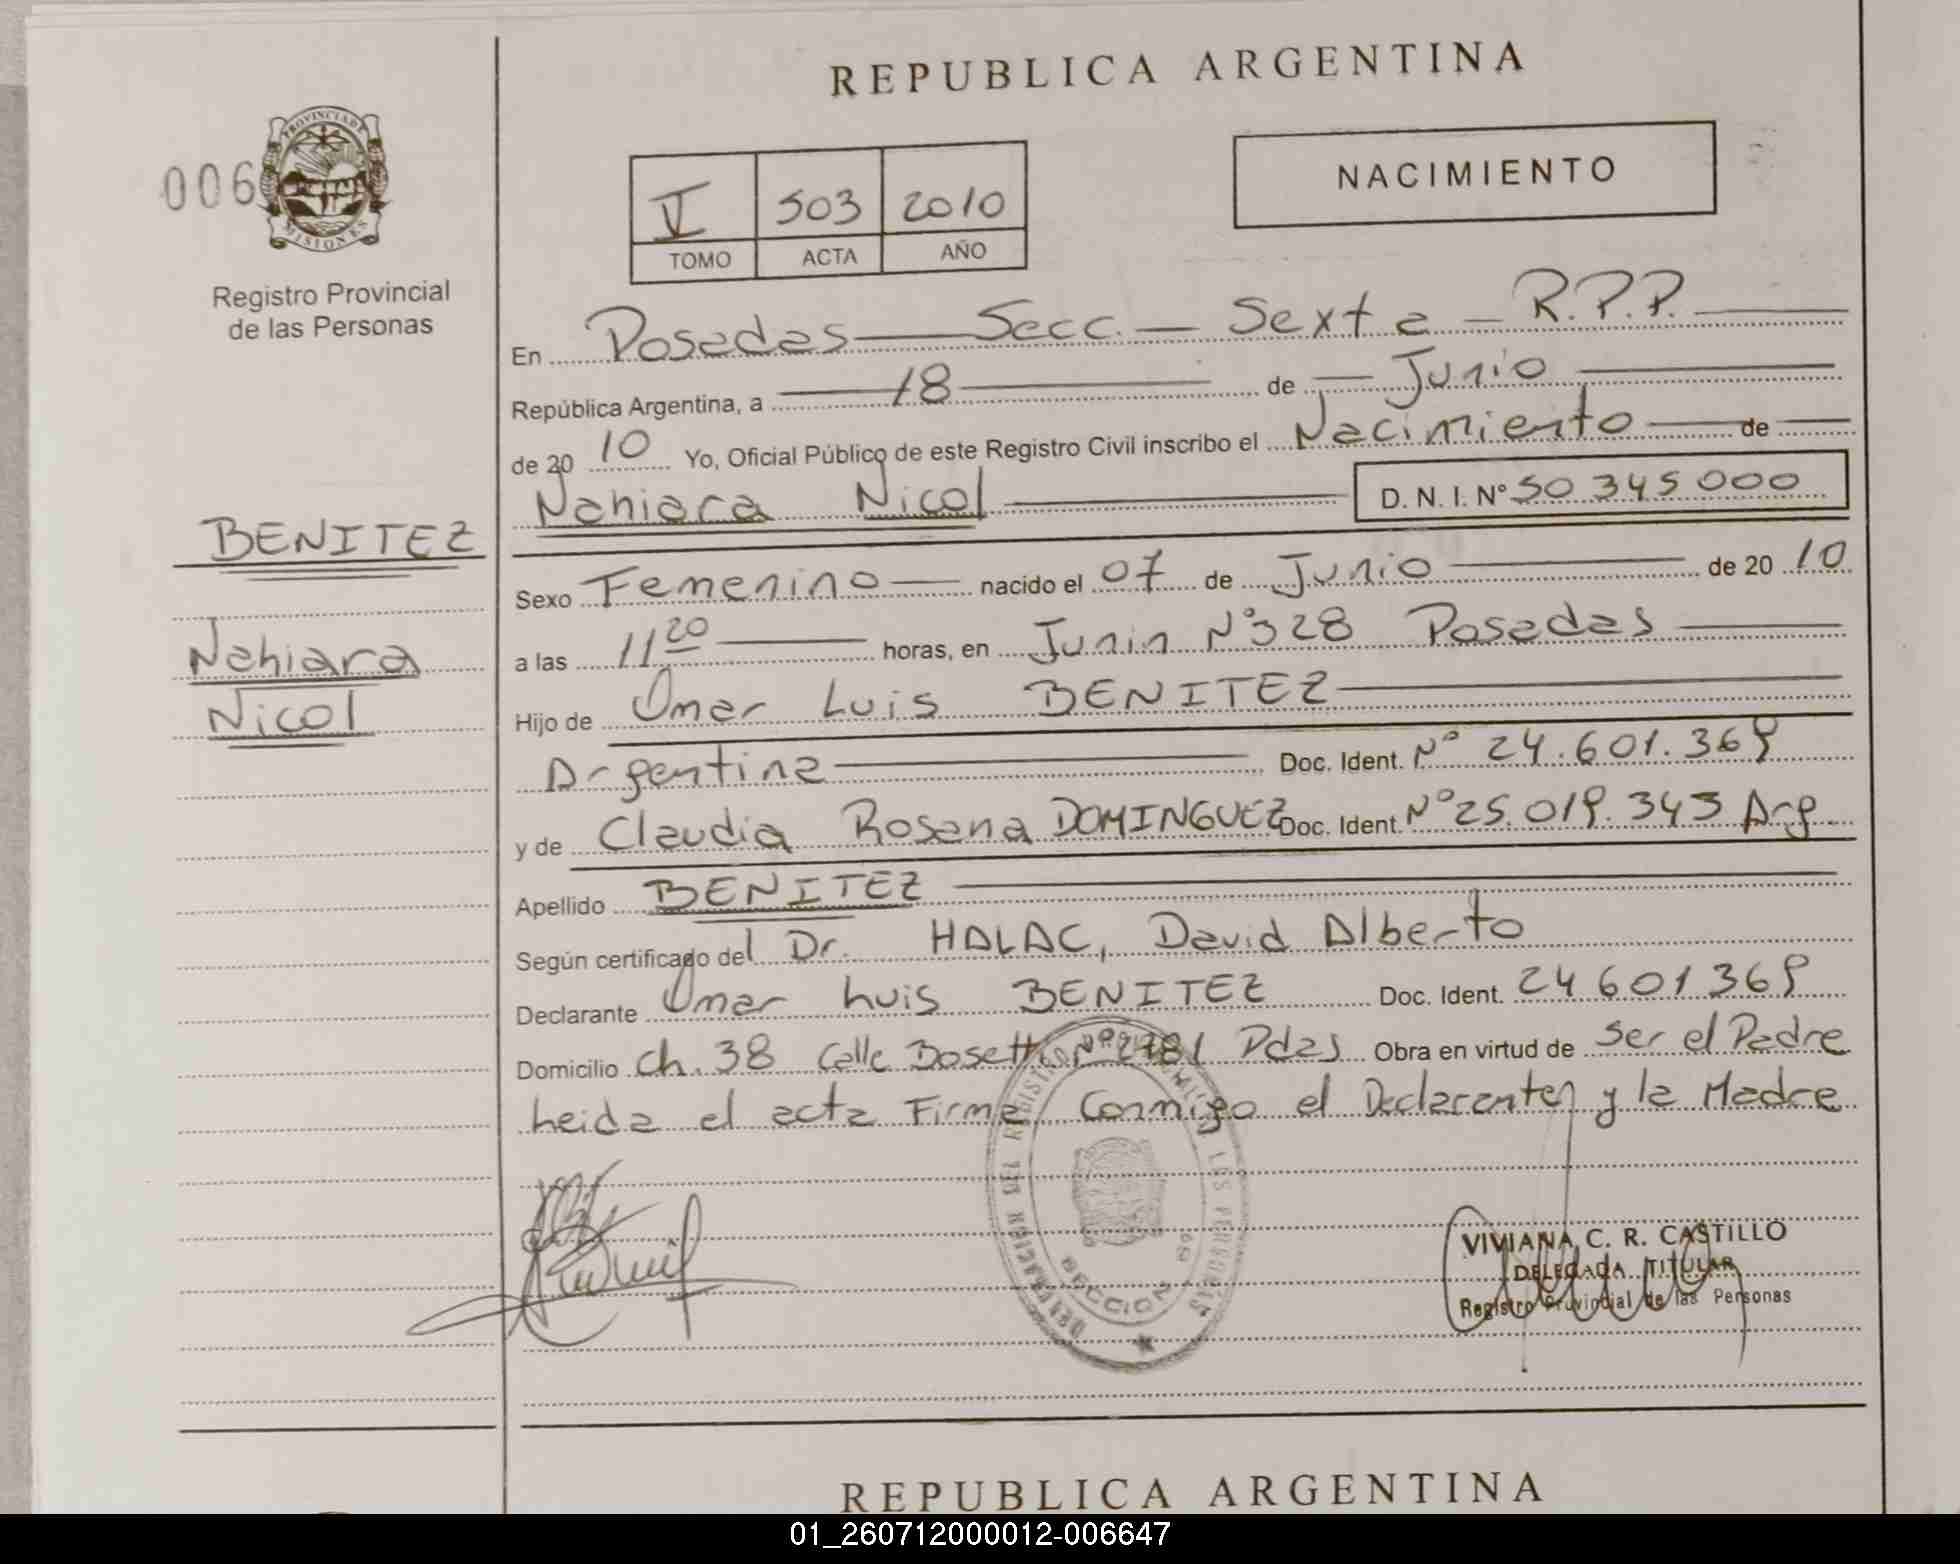 REPUBLICA ARGENTINA
006
PROVINCIA DE MISIONES
Registro Provincial
de las Personas
NACIMIENTO
V 503 2010
TOMO ACTA AÑO
En Posadas Secc. Sexta R.P.P.
República Argentina, a 18 de Junio
de 2010 Yo, Oficial Público de este Registro Civil inscribo el Nacimiento de
Nahiara Nicol D. N. I. Nº 50 345 000
BENITEZ
Nahiara
Nicol
Sexo Femenino nacido el 07 de Junio de 2010
a las 11 20 horas, en Junin Nº 328 Posadas
Hijo de Omar Luis BENITEZ
Argentina Doc. Ident. Nº 24.601.369
y de Claudia Rosana DOMINGUEZ Doc. Ident. Nº 25.019.343 Arg
Apellido BENITEZ
Según certificado del Dr. HALAC, David Alberto
Declarante Omar Luis BENITEZ Doc. Ident. 24 601 369
Domicilio Ch. 38 Calle Bosetti Nº 2781 Pdas Obra en virtud de Ser el Padre
Leida el acta Firma Conmigo el Declarante y la Madre
SECCION
VIVIANA C. R. CASTILLO
DELEGADA TITULAR
Registro Provincial de las Personas
REPUBLICA ARGENTINA
01_260712000012-006647